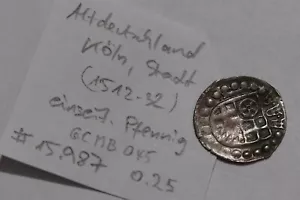 Altdeutschland
Köln, Stadt
(1512-32)
einseit. Pfennig
GCMB 045
#15.987 0.25